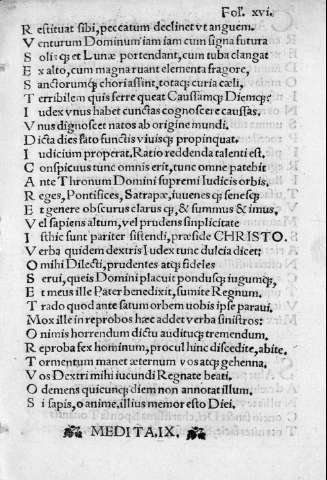 Fol. xvi.
R estituat sibi, peccatum declinet vt anguem.
V enturum Dominum iam iam cum signa futura
S oliq; et Lunæ portendant, cum tuba clangat
E x alto, cum magna ruant elementa fragore,
S anctorumq; chori assint, totaq; curia cæli,
T erribilem quis ferre queat Caussamq; Diemq;?
I udex vnus habet cunctas cognoscere caussas.
V nus dignoscet natos ab origine mundi.
D icta dies fato functis viuisq; propinquat.
I udicium properat. Ratio reddenda talenti est.
C onspicuus tunc omnis erit, tunc omne patebit
A nte Thronum Domini supremi Iudicis orbis.
R eges, Pontifices, Satrapæ, iuuenes q; senesq;
E t genere obscurus clarus q;, & summus & imus,
V el sapiens altum, vel prudens simplicitate
I sthic sunt pariter sistendi, præside CHRISTO.
V erba quidem dextris Iudex tunc dulcia dicet:
O mihi Dilecti, prudentes atq; fideles
S erui, queis Domini placuit pondusq; iugumq;,
E t meus ille Pater benedixit, sumite Regnum.
T rado quod ante satum orbem uobis ipse paraui.
M ox ille in reprobos hæc addet verba sinistros:
O nimis horrendum dictu audituq; tremendum.
R eproba fex hominum, procul hinc discedite, abite.
T ormentum manet æternum vos atq; gehenna.
V os Dextri mihi iucundi Regnate beati.
O demens quicunq; diem non annotat illum.
S i sapis, o anime, illius memor esto Diei.
MEDITA. IX.